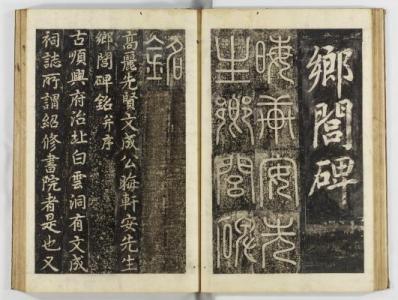 鄕閭碑
晦軒安先
生鄕閭碑
銘
高麗先賢文成公晦軒安先生
鄕閭碑銘幷序
古順興府治址白雲洞有文成
祠誌所謂紹修書院者是也又